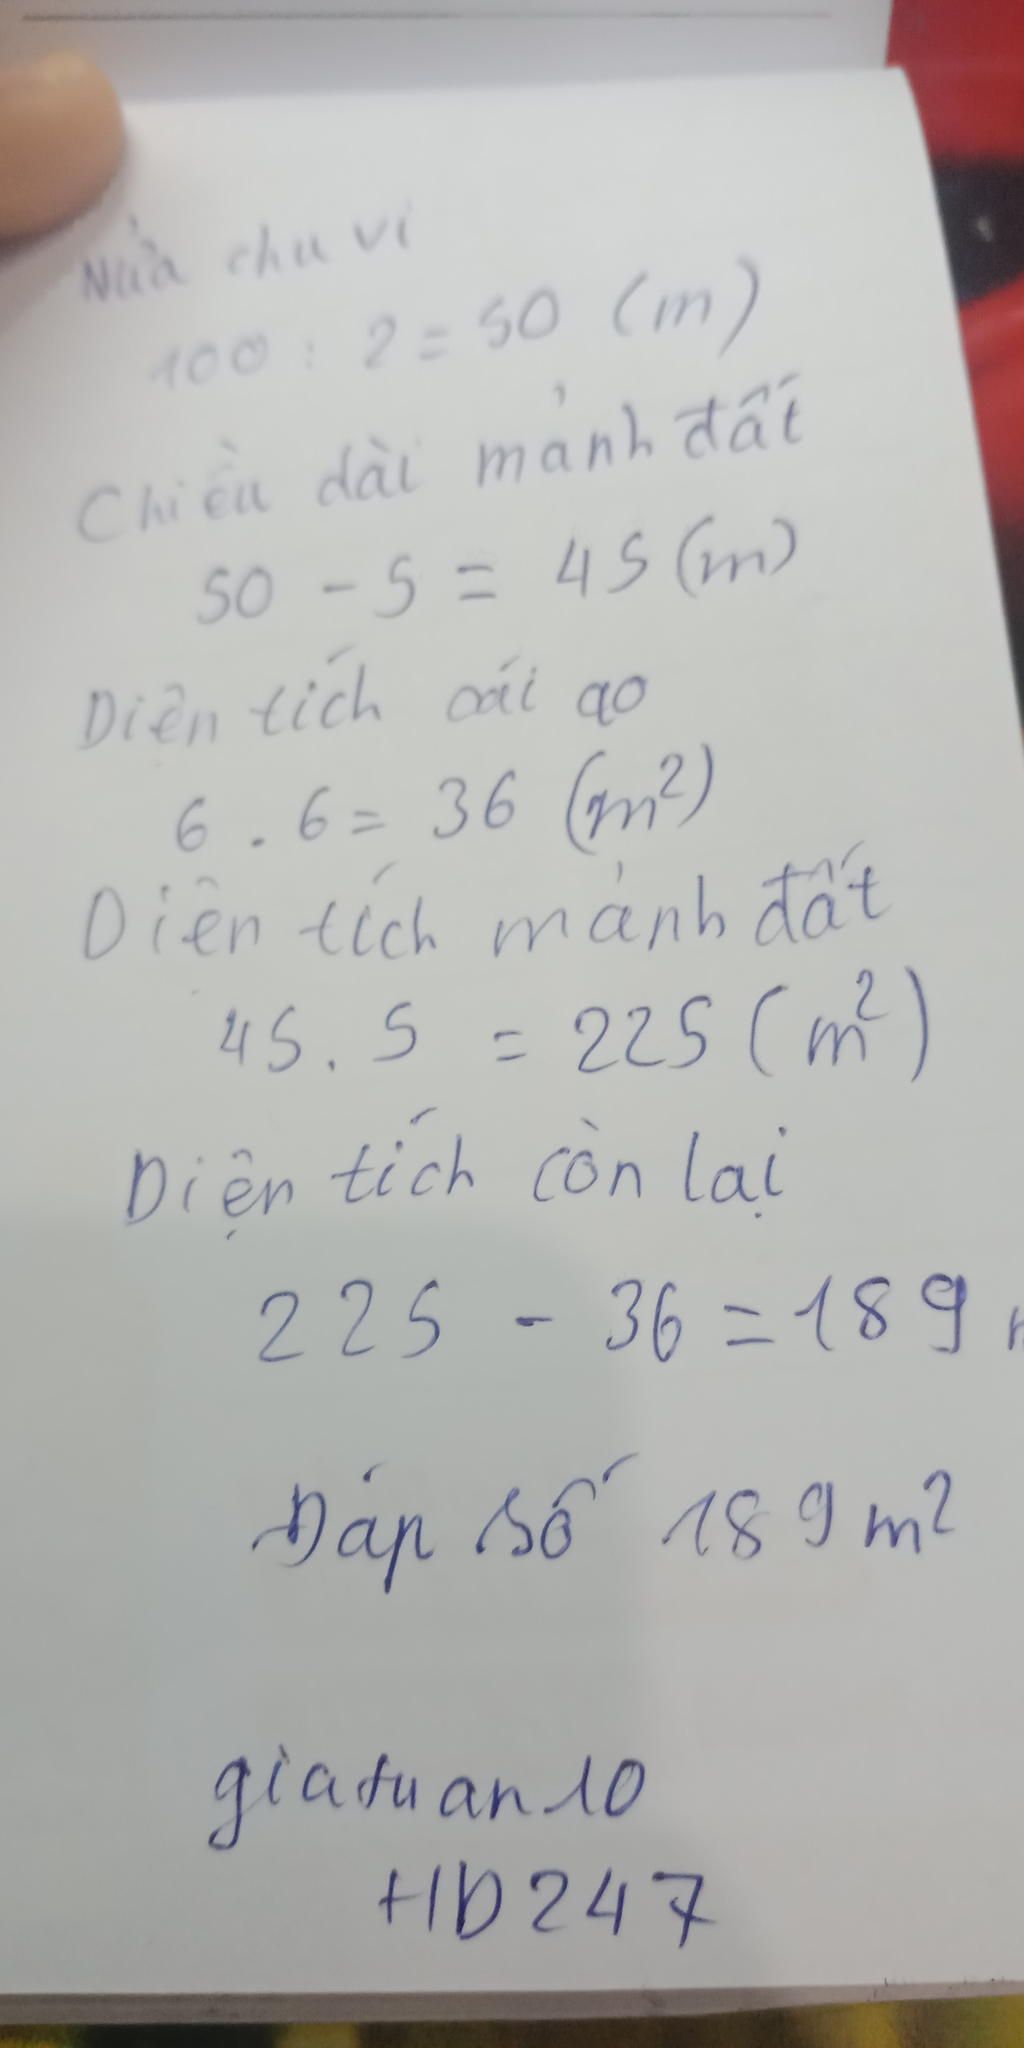 Nửa chu vi
100 : 2 = 50 (m)
Chiều dài mảnh đất
50 - 5 = 45 (m)
Diện tích cái ao
6 . 6 = 36 (m²)
Diện tích mảnh đất
45 . 5 = 225 (m²)
Diện tích còn lại
225 - 36 = 189
Đáp số 189 m²
giatuan10
HD247